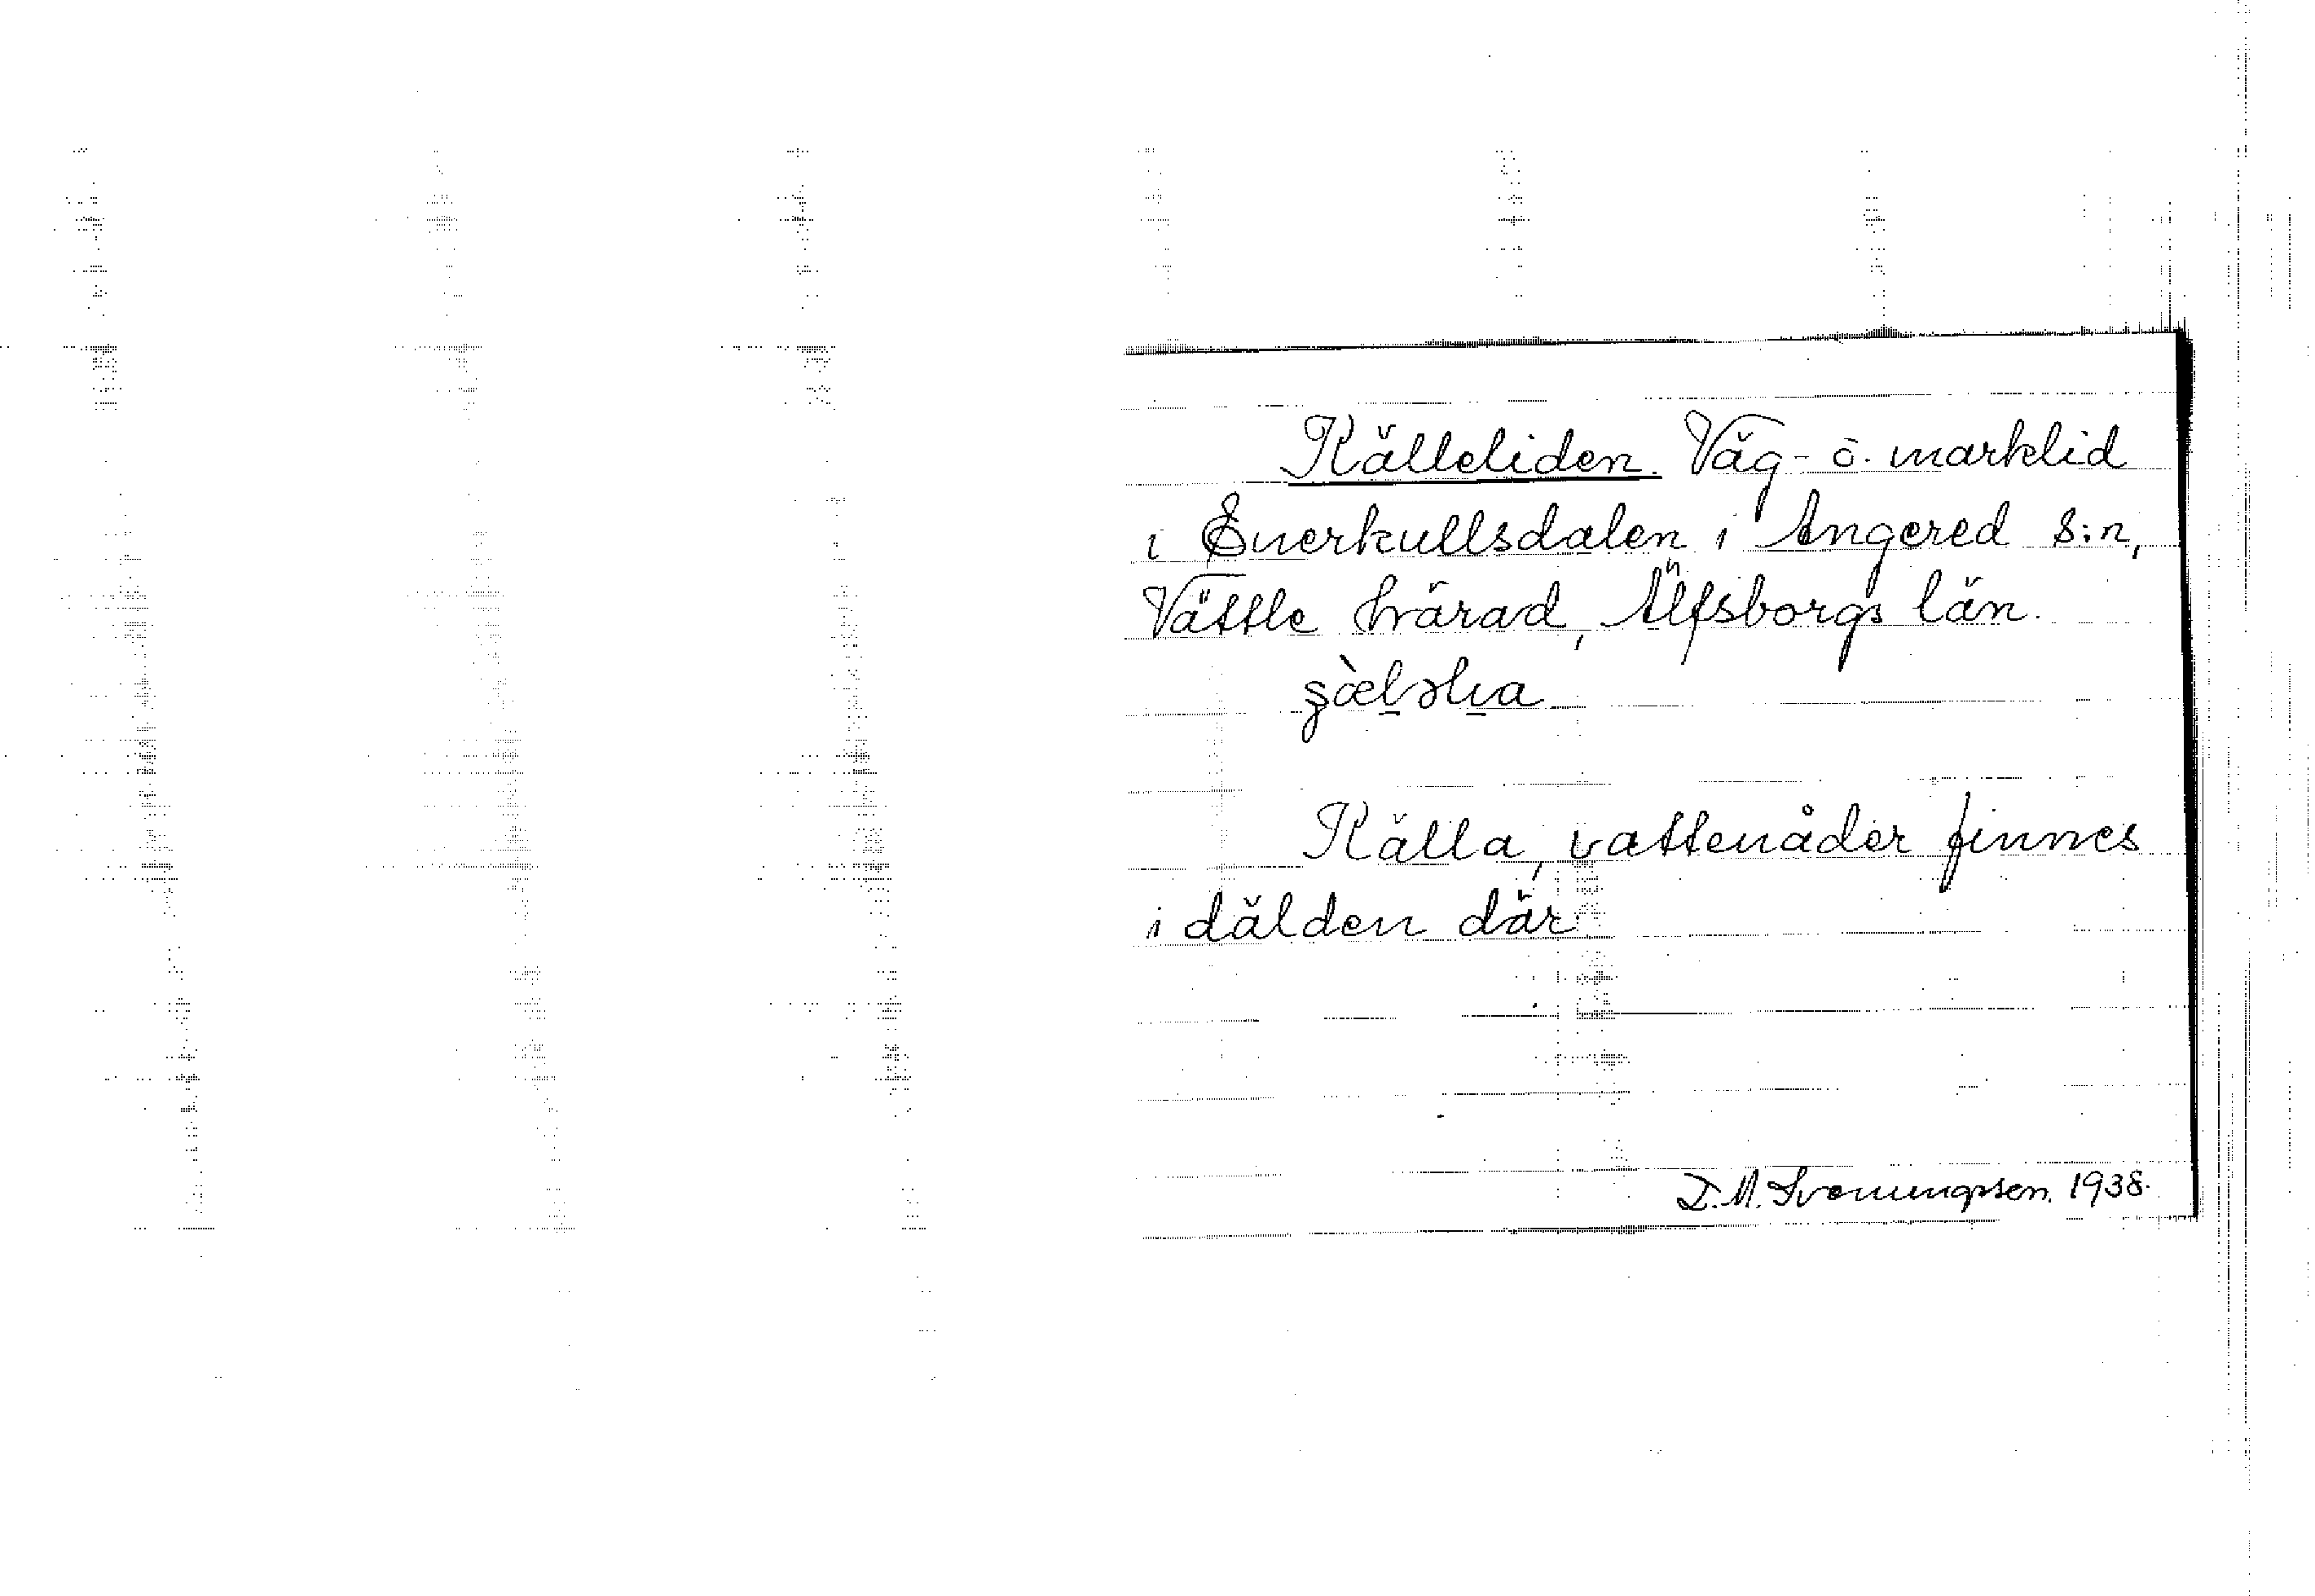 Källeliden. Väg- o. marklid
i Enerkullsdalen i Angered s:n,
Vättle härad, Älfsborgs län.
Källa, vattenåder finnes
i dälden där
D. M. Svenungsson. 1938.